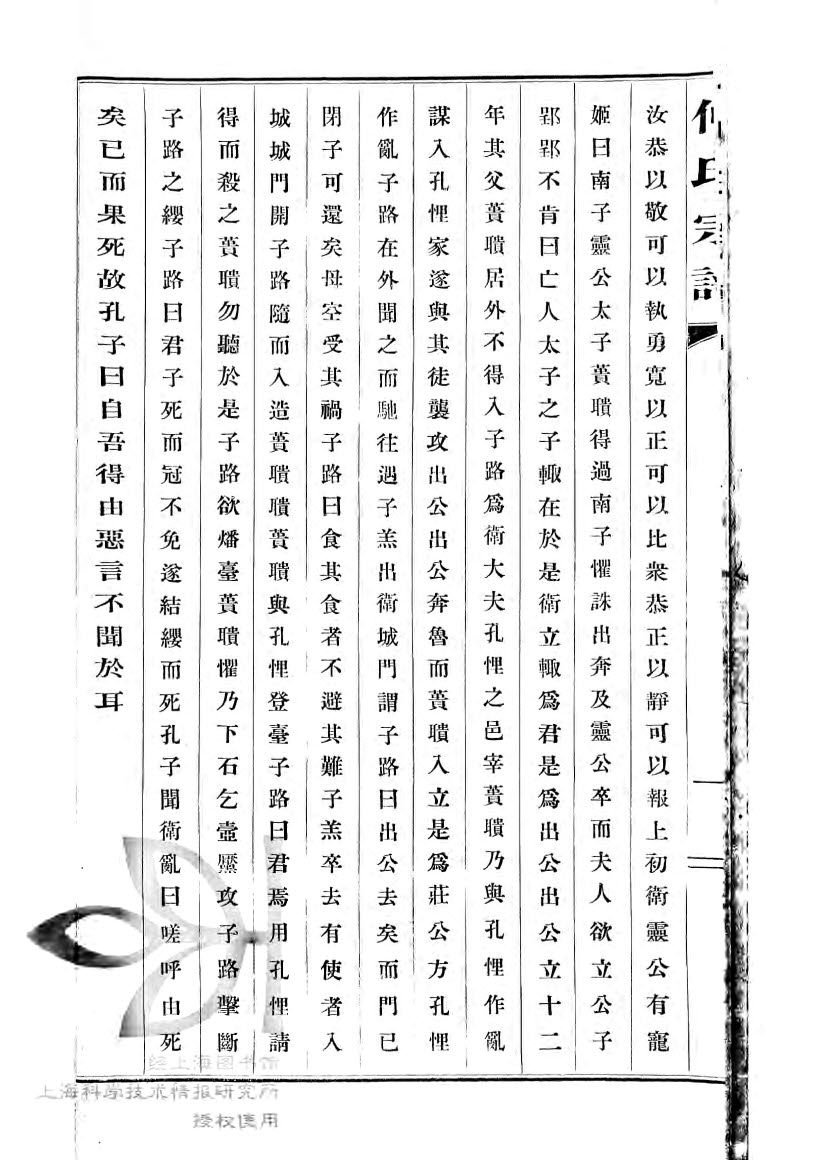 仲氏宗譜
汝恭以敬可以執勇寬以正可以比衆恭正以靜可以報上初衛靈公有寵
姬曰南子靈公太子蕢聵得過南子懼誅出奔及靈公卒而夫人欲立公子
郢郢不肯曰亡人太子之子輙在於是衛立輙爲君是爲出公出公立十二
年其父蕢聵居外不得入子路爲衛大夫孔悝之邑宰蕢聵乃與孔悝作亂
謀入孔悝家遂與其徒襲攻出公出公奔魯而蕢聵入立是爲莊公方孔悝
作亂子路在外聞之而馳往遇子羔出衛城門謂子路曰出公去矣而門已
閉子可還矣毋空受其禍子路曰食其食者不避其難子羔卒去有使者入
城城門開子路隨而入造蕢聵聵蕢聵與孔悝登臺子路曰君焉用孔悝請
得而殺之蕢聵勿聽於是子路欲燔臺蕢聵懼乃下石乞壼黶攻子路擊斷
子路之纓子路曰君子死而冠不免遂結纓而死孔子聞衛亂曰嗟呼由死
矣已而果死故孔子曰自吾得由惡言不聞於耳
经上海图书馆
上海科学技术情报研究所
授权使用